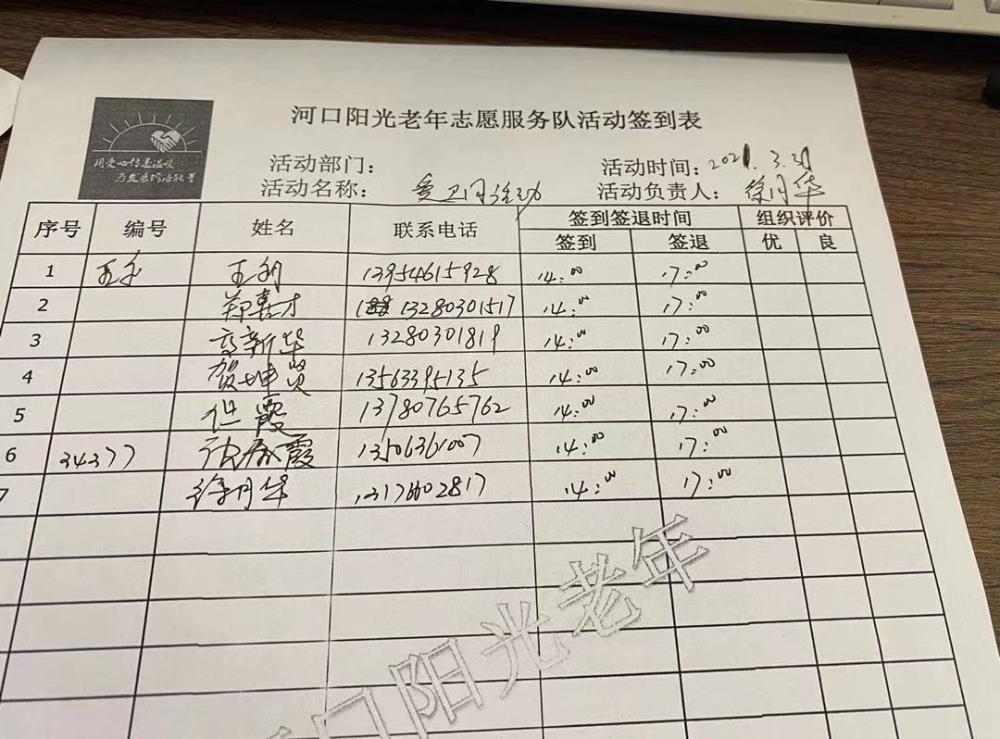 河口阳光老年志愿服务队活动签到表
用爱心传递温暖
活动部门：
活动时间：2021.3.31
活动名称： 爱卫月活动
活动负责人： 徐月华
序号 编号 姓名 联系电话 签到签退时间 组织评价
签到 签退 优 良
1 王利 13954615928 14:00 17:00
2 郑嘉才 13280301517 14:00 17:00
3 高新华 13280301819 14:00 17:00
4 贺坤贤 13563395135 14:00 17:00
5 但霞 13780765762 14:00 17:00
6 34377 张春霞 13506361007 14:00 17:00
7 徐月华 14:00 17:00
口阳光老年